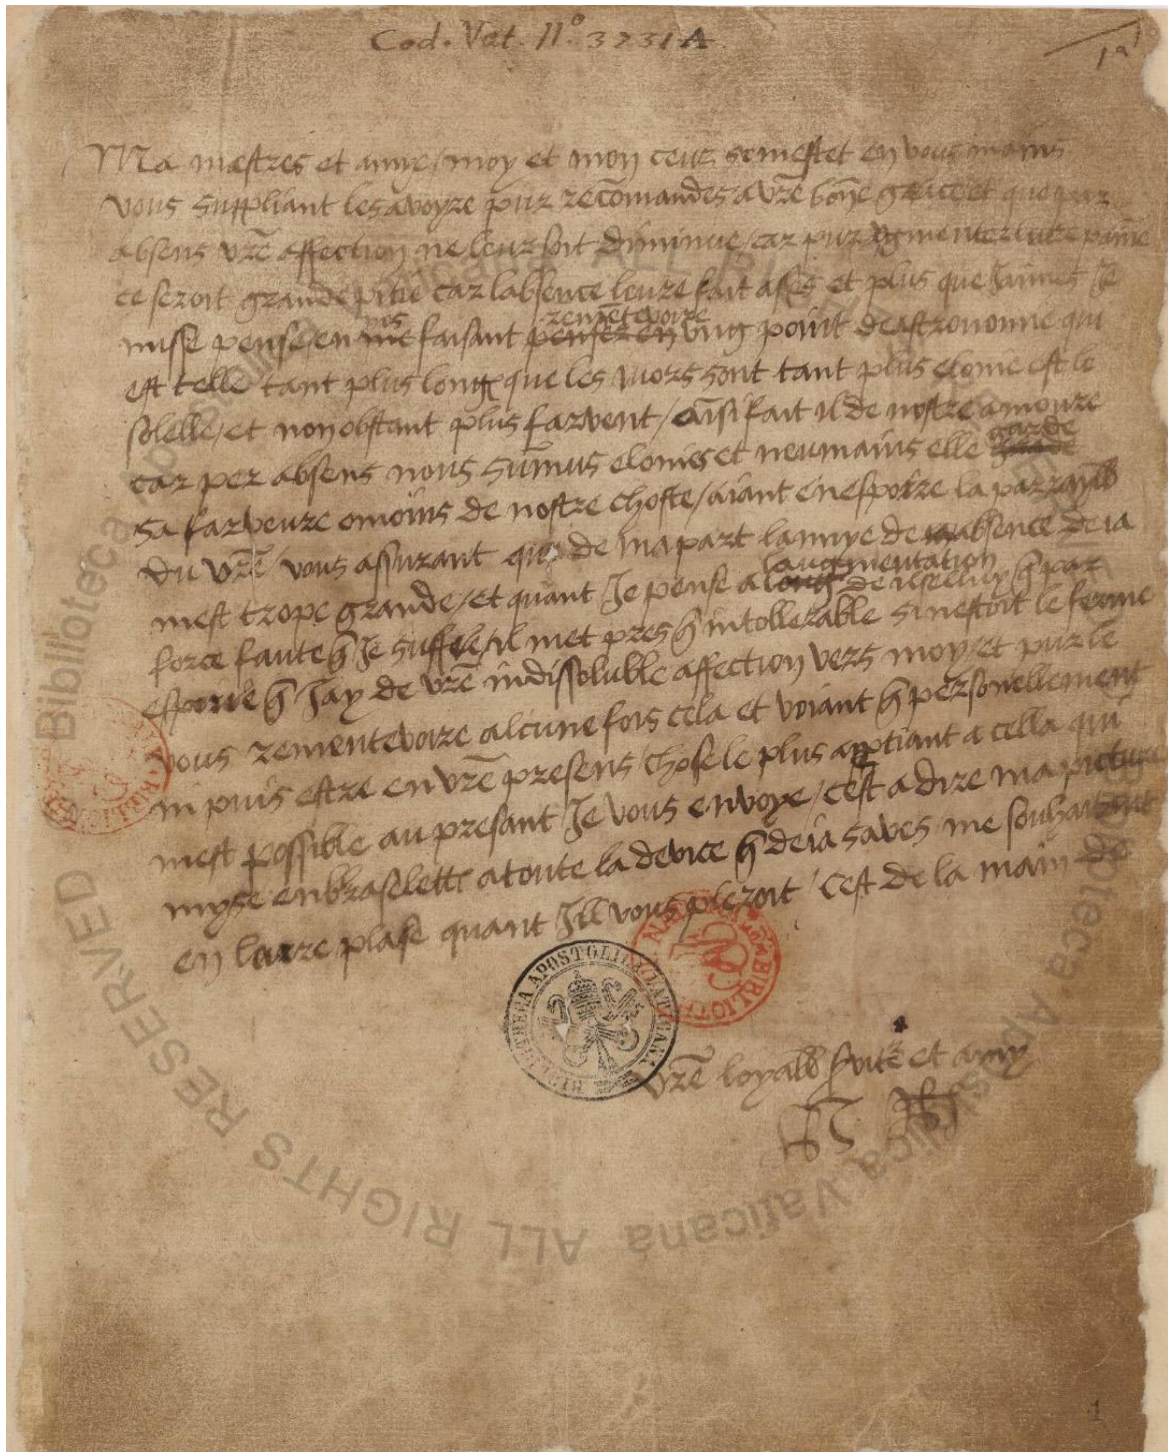 Cod. Vat. N.º 3731 A.
Ma mestres et amye / moy et mon ceur semestet en vous mains
vous suppliant les avoyre pur recōmandes a vr̄e bōne grace et que par
absens vr̄e affection ne leur soit diminue / car pur agmenter leure paine
ce seroit grande pitie car labsence leure fait asses et plus que Jaimes Je
nusse pense / en nus faisant remētevoire ung point de astronomie qui
est telle tant plus longs que les mors sont tant plus elonie est le
solelle / et non obstant plus farvent / ainsi fait il de nostre amoure
car per absens nous sūmus elonies et neumains elle garde
sa farveure omoins de nostre choste / aiant en espoire la parrayll
du vr̄e / vous assurant que de ma part lannye de absence deia
mest trope grande / et quant Je pense a laugmentation de icelluy q̄ par
force faute q̄ Je suffre / il met pres q̄ intollerable si nestoit le ferme
espoire q̄ Jay de vr̄e indissoluble affection vers moy / et pur le
vous rementevoire alcune fois cela et voiant q̄ personellement
ni puis estre en vr̄e presens / chose le plus apptiant a cella qui
mest possible au presant Je vous envoye / cest a dire ma picture
myse en braselette a toute la device q̄ deia saves me souhaitant
en leure plase quant Ill vous pleroit / Cest de la main de
vr̄e loyall s̄vite et amy
H R
BIBLIOTHECA APOSTOLICA VATICANA
Biblioteca Apostolica Vaticana ALL RIGHTS RESERVED
1